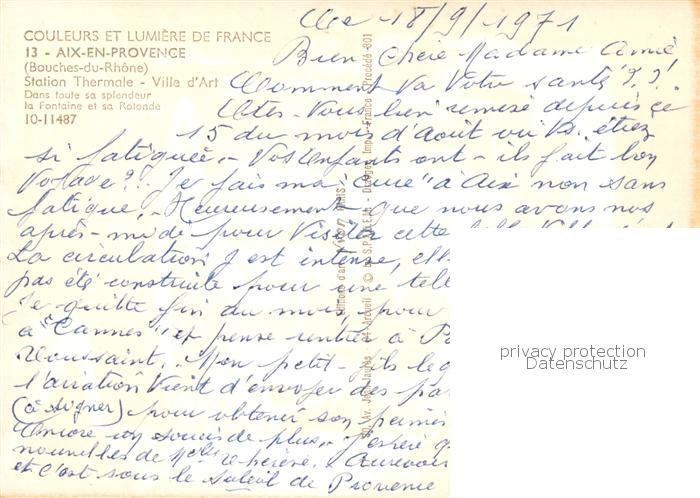 COULEURS ET LUMIÈRE DE FRANCE
13 - AIX-EN-PROVENCE
(Bouches-du-Rhône)
Station Thermale - Ville d'Art
Dans toute sa splendeur
la Fontaine et sa Rotonde
10-11487
18/9/1971
Bien chère Madame Amie,
Comment va votre santé ??
Etes-vous bien remise depuis ce
15 du mois d'Août où étiez
si fatiguée. - Vos Enfants ont-ils fait bon
voyage ?! Je fais ma "cure" à Aix non sans
fatigue. - Heureusement que nous avons nos
après-midi pour visiter cette belle
La circulation y est intense, ell
pas été construite pour une tell
Je quitte fin du mois, pour
à "Cannes" et pense rentrer à Pa
Toussaint... Mon petit-fils le
l'aviation vient d'envoyer des pa
(à signer) pour obtenir son permis
Encore un soucis de plus.. J'espère
nouvelles de Melle Thérèse. Aurevoir
et c'est sous le Soleil de Provence
privacy protection
Datenschutz